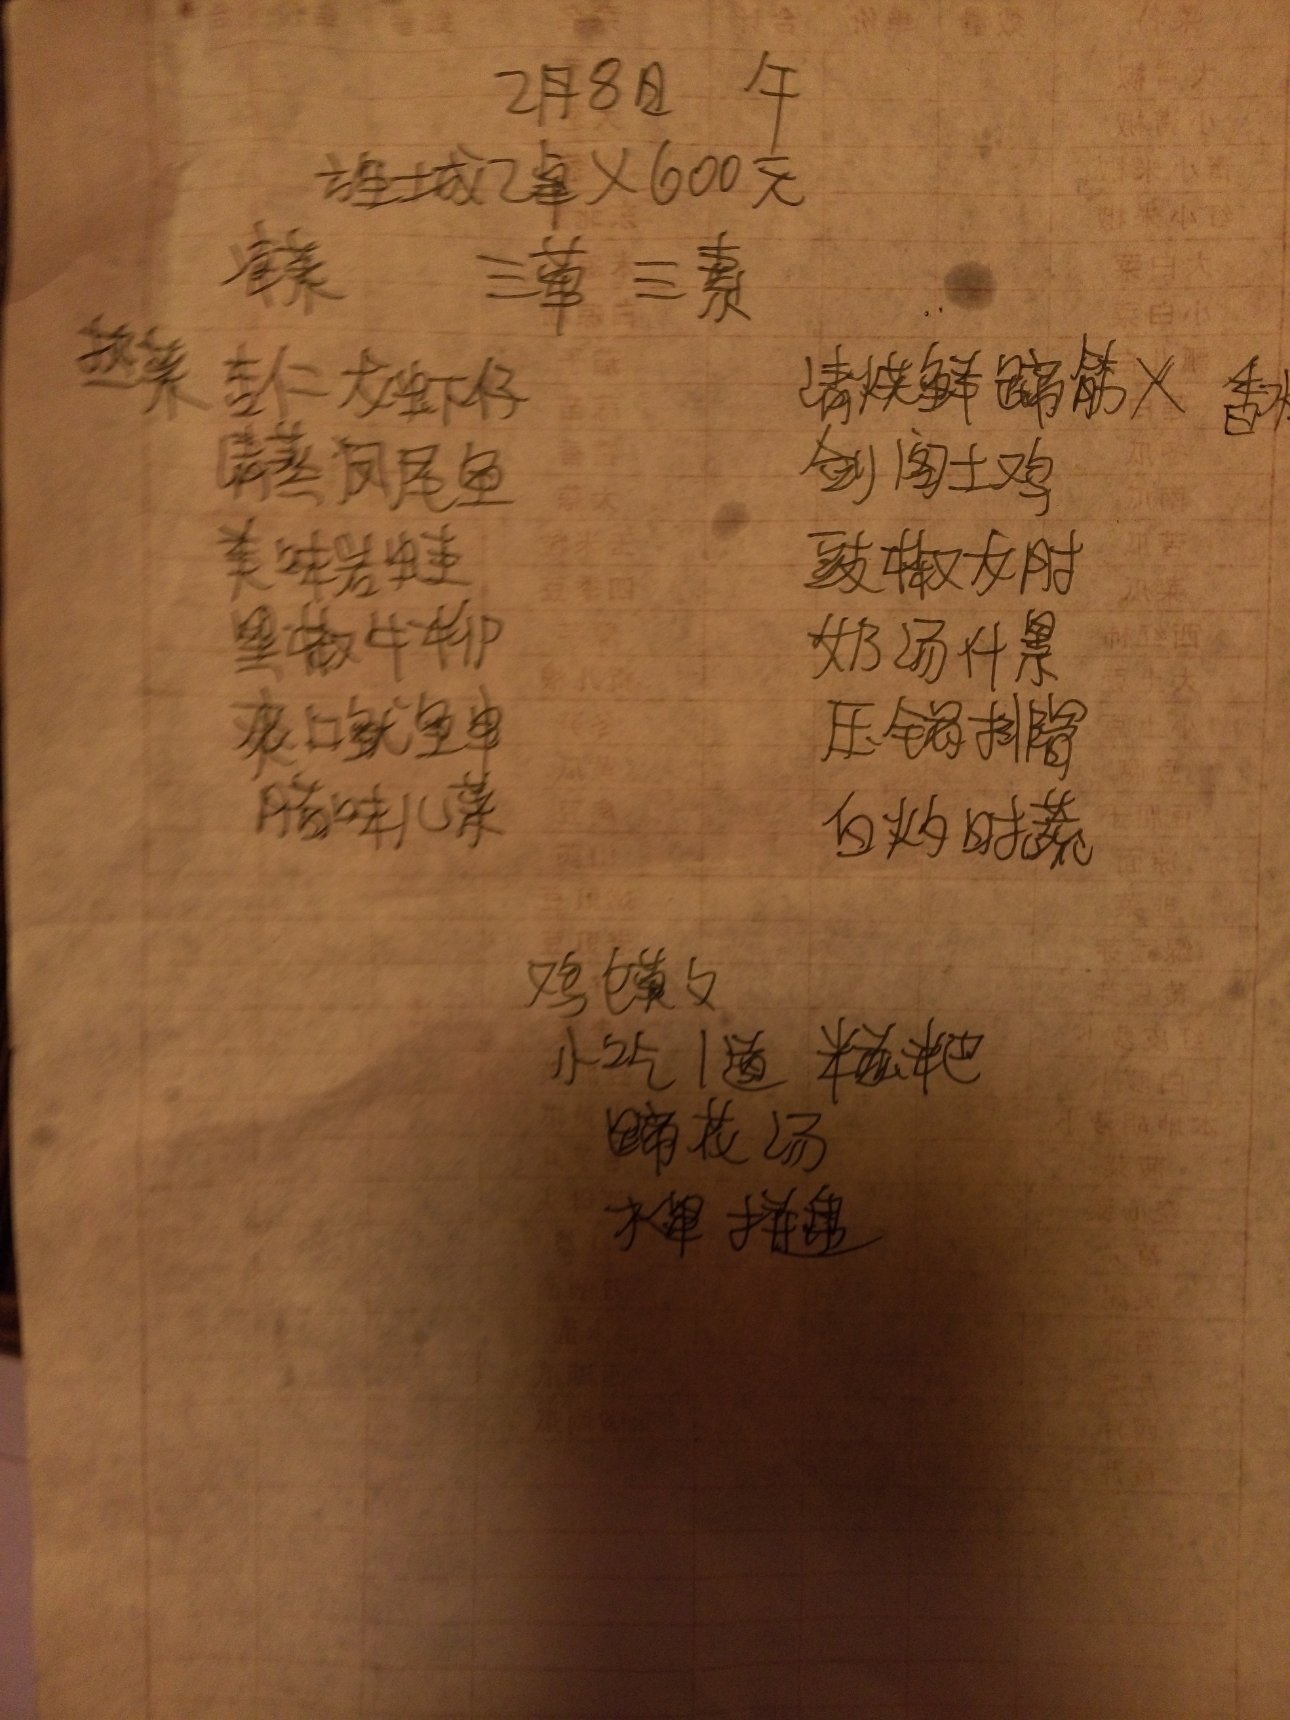 2月8日 午
城2桌X600元
三荤 三素
热菜 大虾仔 清烧鲜蹄筋X 香
清蒸凤尾鱼 剑阁土鸡
美味岩蛙 豉椒大肘
黑椒牛柳 奶汤什景
爽口鱿鱼串 压锅排
腊味儿菜 白灼时蔬
小吃1道 糍粑
蹄花汤
水果拼盘